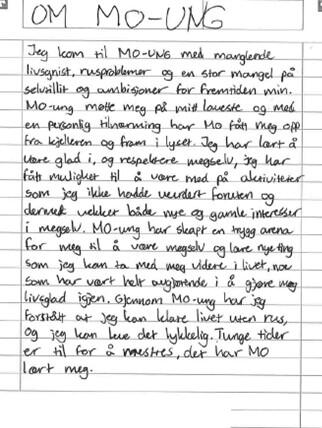 OM MO-UNG
Jeg kom til MO-UNG med manglende
livsgnist, rusproblemer og en stor mangel på
selvtillit og ambisjoner for fremtiden min.
MO-ung møtte meg på mitt laveste og med
en personlig tilnærming har MO fått meg opp
fra kjelleren og fram i lyset. Jeg har lært å
være glad i, og respektere megselv, jeg har
fått mulighet til å være med på aktiviteter
som jeg ikke hadde vurdert foruten og
dermed vekket både nye og gamle interesser
i megselv. MO-ung har skapt en trygg arena
for meg til å være megselv og lære nye ting
som jeg kan ta med meg videre i livet, noe
som har vært helt avgjørende i å gjøre meg
livsglad igjen. Gjennom MO-ung har jeg
forstått at jeg kan klare livet uten rus,
og jeg kan leve det lykkelig. Tunge tider
er til for å mestres, det har MO
lært meg.